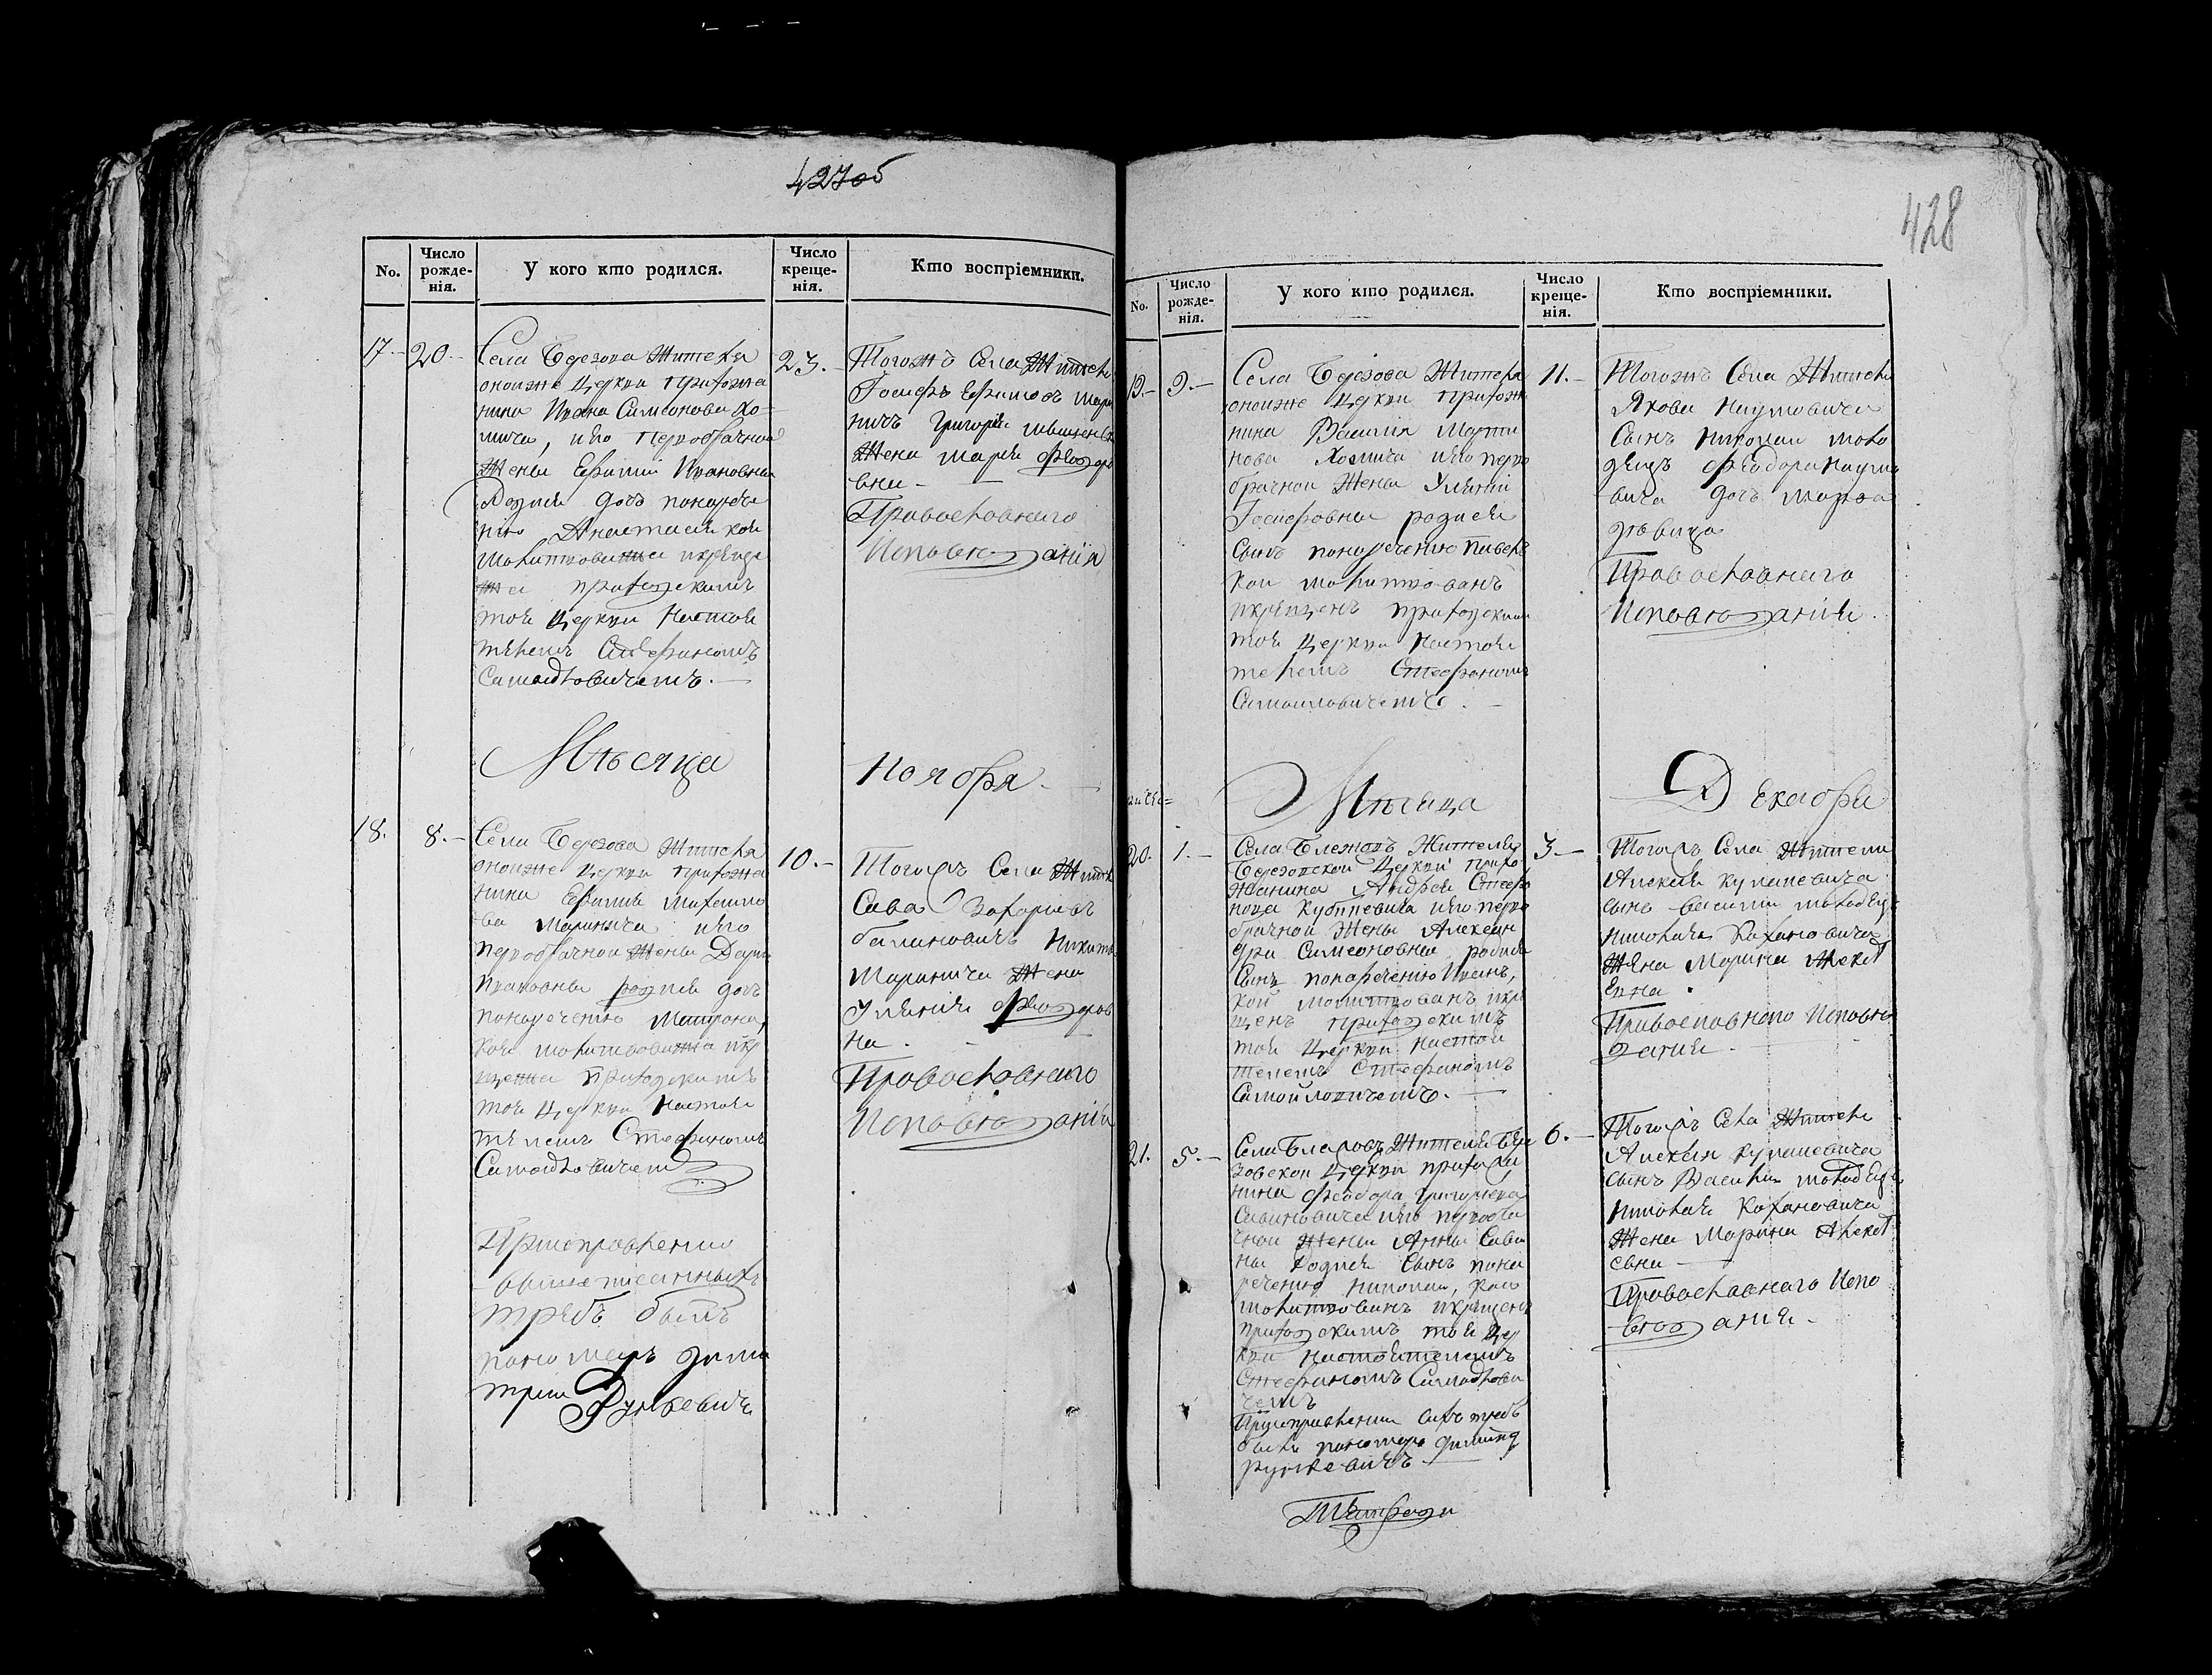 427об
No.
Число рожде-нія.
У кого кто родился.
Число креще-нія.
Кто воспріемники.
17
20
Села Березова Жителя
оноиже Церкви прихожа
нина Ивана Симеонова Хо-
мича, и его первобрачной
Жены Ефимии Ивановны
Родися дочь понарече
нию Анастасия коя
молитвованна и креще
на приходскимъ
тоя Церкви Настоя
телемъ Стефаномъ
Самойловичемъ.
23.
Тогожъ Села Жители
Иосифъ Ефимовъ Мари
ничъ Григория
Жена Мария Феодоро
вна
Православнаго
Исповѣданія
Мѣсяца
Ноября
18.
8.
Села Березова Жителя
оноиже Церкви прихожа
нина Ефимия Михаило
ва Маринича и его
первобрачной Жены Дарии
Ивановны родися дочь
понаречению Матрона,
коя молитвованна и кре
щенна Приходскимъ
тоя Церкви Настоя
телемъ Стефаномъ
Самойловичемъ
10.
Тогожъ Села Жители
Сава Захариевъ
Никиты
Маринича Жена
Улиания Феодоров
на.
Православнаго
Исповѣданія
При исправлении
вышеписанныхъ
требъ былъ
пономарь Дими
трий Рункевичъ
428
No.
Число рожде-нія.
У кого кто родился.
Число креще-нія.
Кто воспріемники.
19.
9.
Села Березова Жителя
оноиже Церкви прихожа
нина Василия Марти
нова Хомича и его перво
брачной Жены Улянии
Иосифовны родися
сынъ понаречению
кой молитвованъ
и крещенъ приходскимъ
тоя Церкви Настоя
телемъ Стефаномъ
Самоиловичемъ.
11.
Тогожъ Села Жители
Якова Наумовича
Сынъ Николай моло
децъ Феодора Науми
вича дочь Марфа
дѣвица
Православнаго
Исповѣдания.
Мѣсяца
Декабря
20.
1.
Села Блежовъ Жителя
Березовской Церкви прихо
жанина Андрея Стефа
нова и его перво
брачной Жены Александры
Симеоновны родися
Сынъ понаречению Иванъ,
кой молитвованъ и кре
щенъ приходскимъ
тоя Церкви Настоя
телемъ Стефаномъ
Самойловичемъ.
3
Тогожъ Села Жители
Алексея
сынъ Василий молодецъ
Николая Кохановича
Жена Марина Алексе
евна.
Православнаго Исповѣ
дания.
21.
5.
Села Блежовъ Жителя Бере
зовской Церкви прихожа
нина Феодора Григориева
Савиновича и его первобра
чной Жены Анны Сави
ны Родися Сынъ пона
речению Николай, кой
молитвованъ и крещенъ
приходскимъ тоя Цер
кви Настоятелемъ
Стефаномъ Самойлови
чемъ
При исправлении сихъ требъ
былъ пономарь Димитрий
Рункевичъ
6.
Тогожъ Села Жители
Алексея
сынъ Василий молодецъ
Николая Кохановича
Жена Марина Алексе
евна
Православнаго Испо
вѣдания.